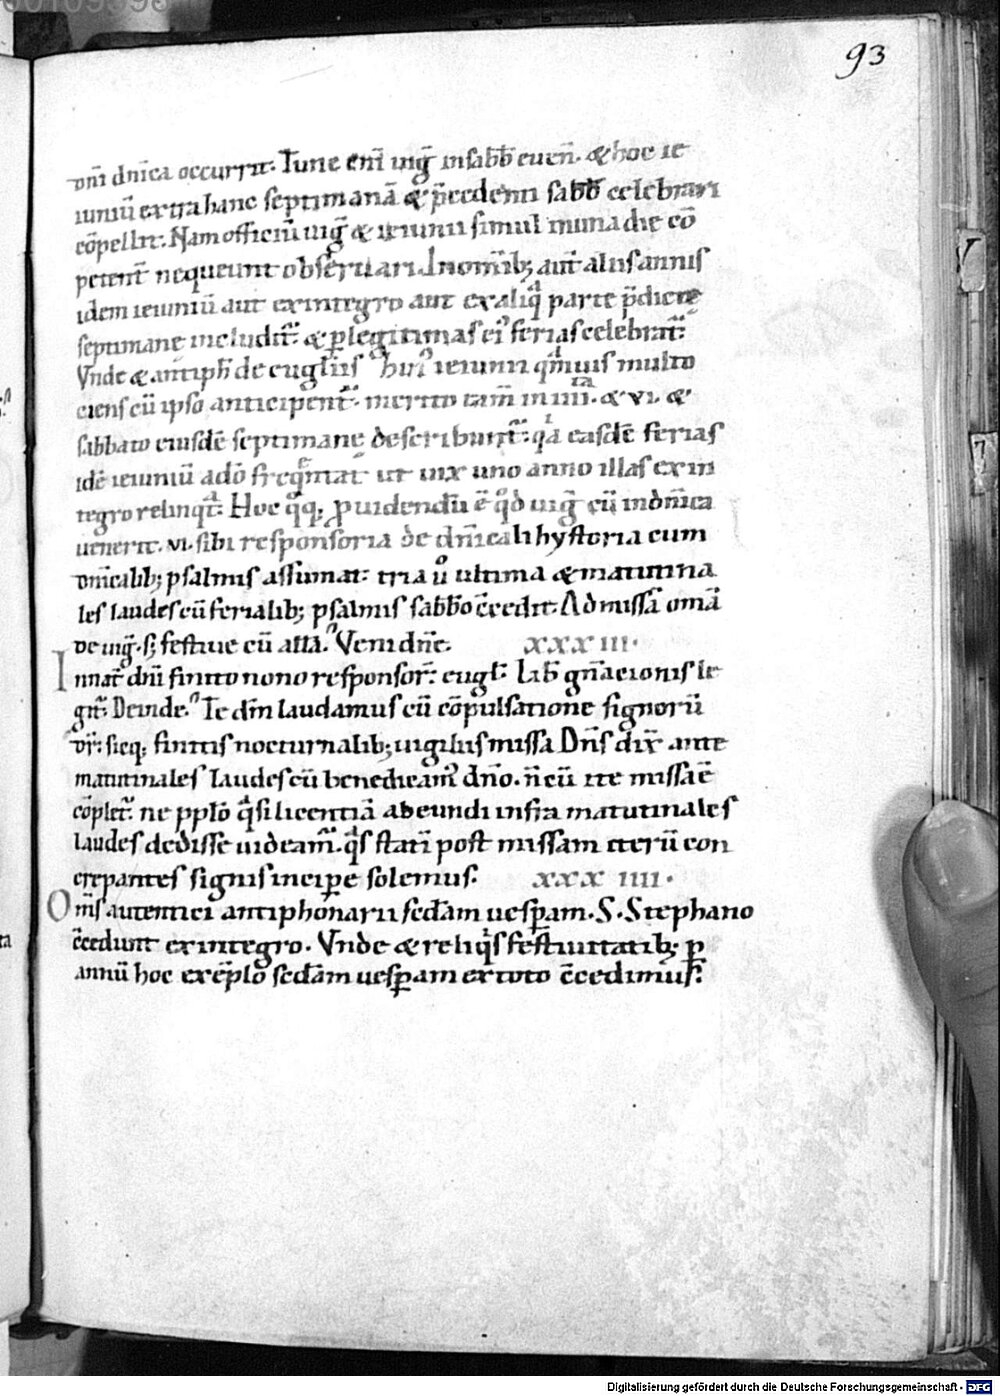 93
om̄i dn̄ica occurrit. Tunc eni᷒ uig̅ in sabb̅ euen̅. & hoc ie
iuniū extra hanc septimanā & p̄cedenti sabb̅ celebrari
cōpellit. Nam officiū uig̅ & ieiunii simul in una die cō
petent̅ nequeunt obseruari. In omīb; aut̅ aliis annis
idem ieiuniū aut ex integro aut ex aliqͣ parte p̄dictę
septimanę includit᷑. & ꝑ legitimas ei᷒ ferias celebrat᷑.
Vnde & antiph̅ de eugl̅iis hui᷒ ieiunii qͣmuis multo
ciens cū ipso anticipent᷑. merito tam̅ in iiii. & vi. &
sabbato eiusdē septimanę describunt᷑. qͥa easdē ferias
idē ieiuniū adō freq̅ntat ut uix uno anno illas ex in
tegro relinqͣt. Hoc qͦq; ꝓuidendū ē qͦd uig̅ cū in dn̄ica
uenerit. vi. sibi responsoria de dn̄icali hystoria cum
dn̄icalib; psalmis assumat. tria uͦ ultima & matutina
les laudes cū ferialib; psalmis sabb̅o c̄cedit. Ad missā om̄ia
de uig̅. s; festiue cū all̅a. Veni dn̄e. xxxiii.
In nat̅ dn̄i finito nono responsor̅. eugl̅. Lib̅ gn̄acionis le
git᷑. Deinde. Te dm̅ laudamus cū cōpulsatione signorū
dr̅. sicq; finitis nocturnalib; uigiliis missa Dn̄s dix̅ ante
matutinales laudes cū benedicam᷒ dn̄o. n̄ cū ite missa ē
cōplet᷑. ne pplō qͣsi licentiā abeundi infra matutinales
laudes dedisse uideam᷑. qͣs stati᷒ post missam iterū con
crepantes signis incipe̅ solemus. xxxiiii.
Om̄s autentici antiphonarii sed̅am uesꝑam. S. Stephano
c̄cedunt ex integro. Vnde & reliqͥs festiuitatib; ꝑ
annū hoc exēplo sed̅am uesꝑam ex toto c̄cedimus.
Digitalisierung gefördert durch die Deutsche Forschungsgemeinschaft - DFG